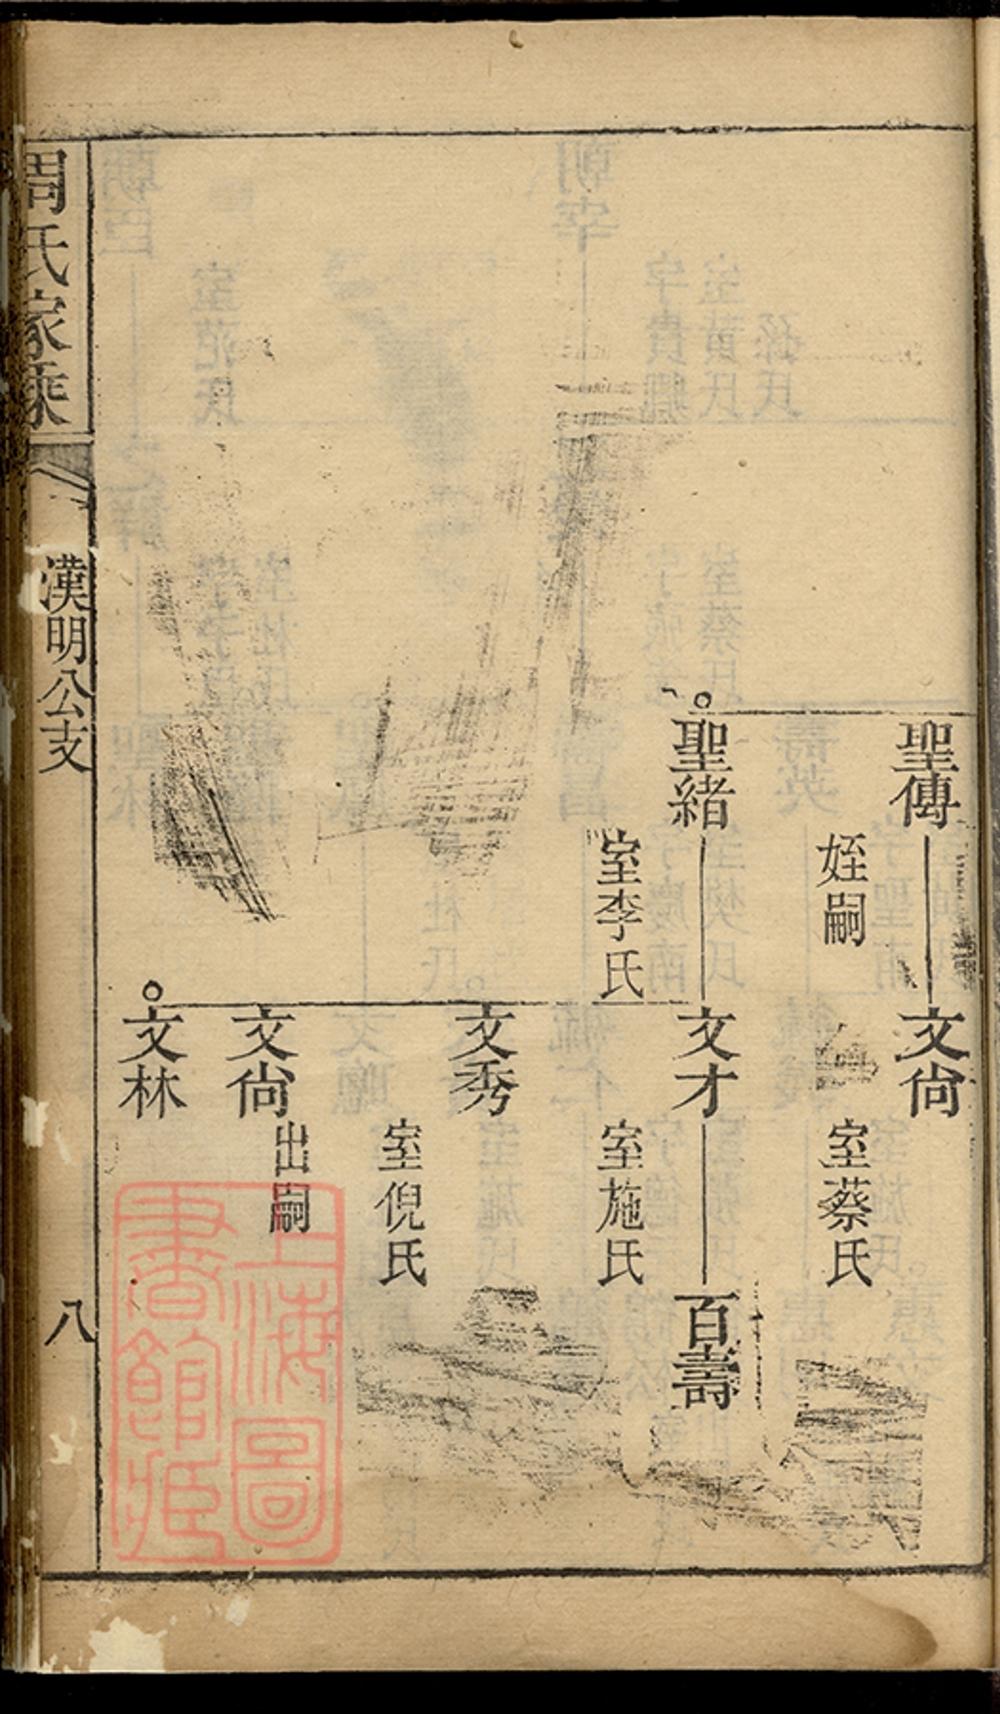 聖傳
姪嗣
文尙
室蔡氏
聖緒
室李氏
文才
室施氏
百壽
文秀
室倪氏
文尙
出嗣
文林
周氏家乘
漢明公支
八
上海圖
書館藏